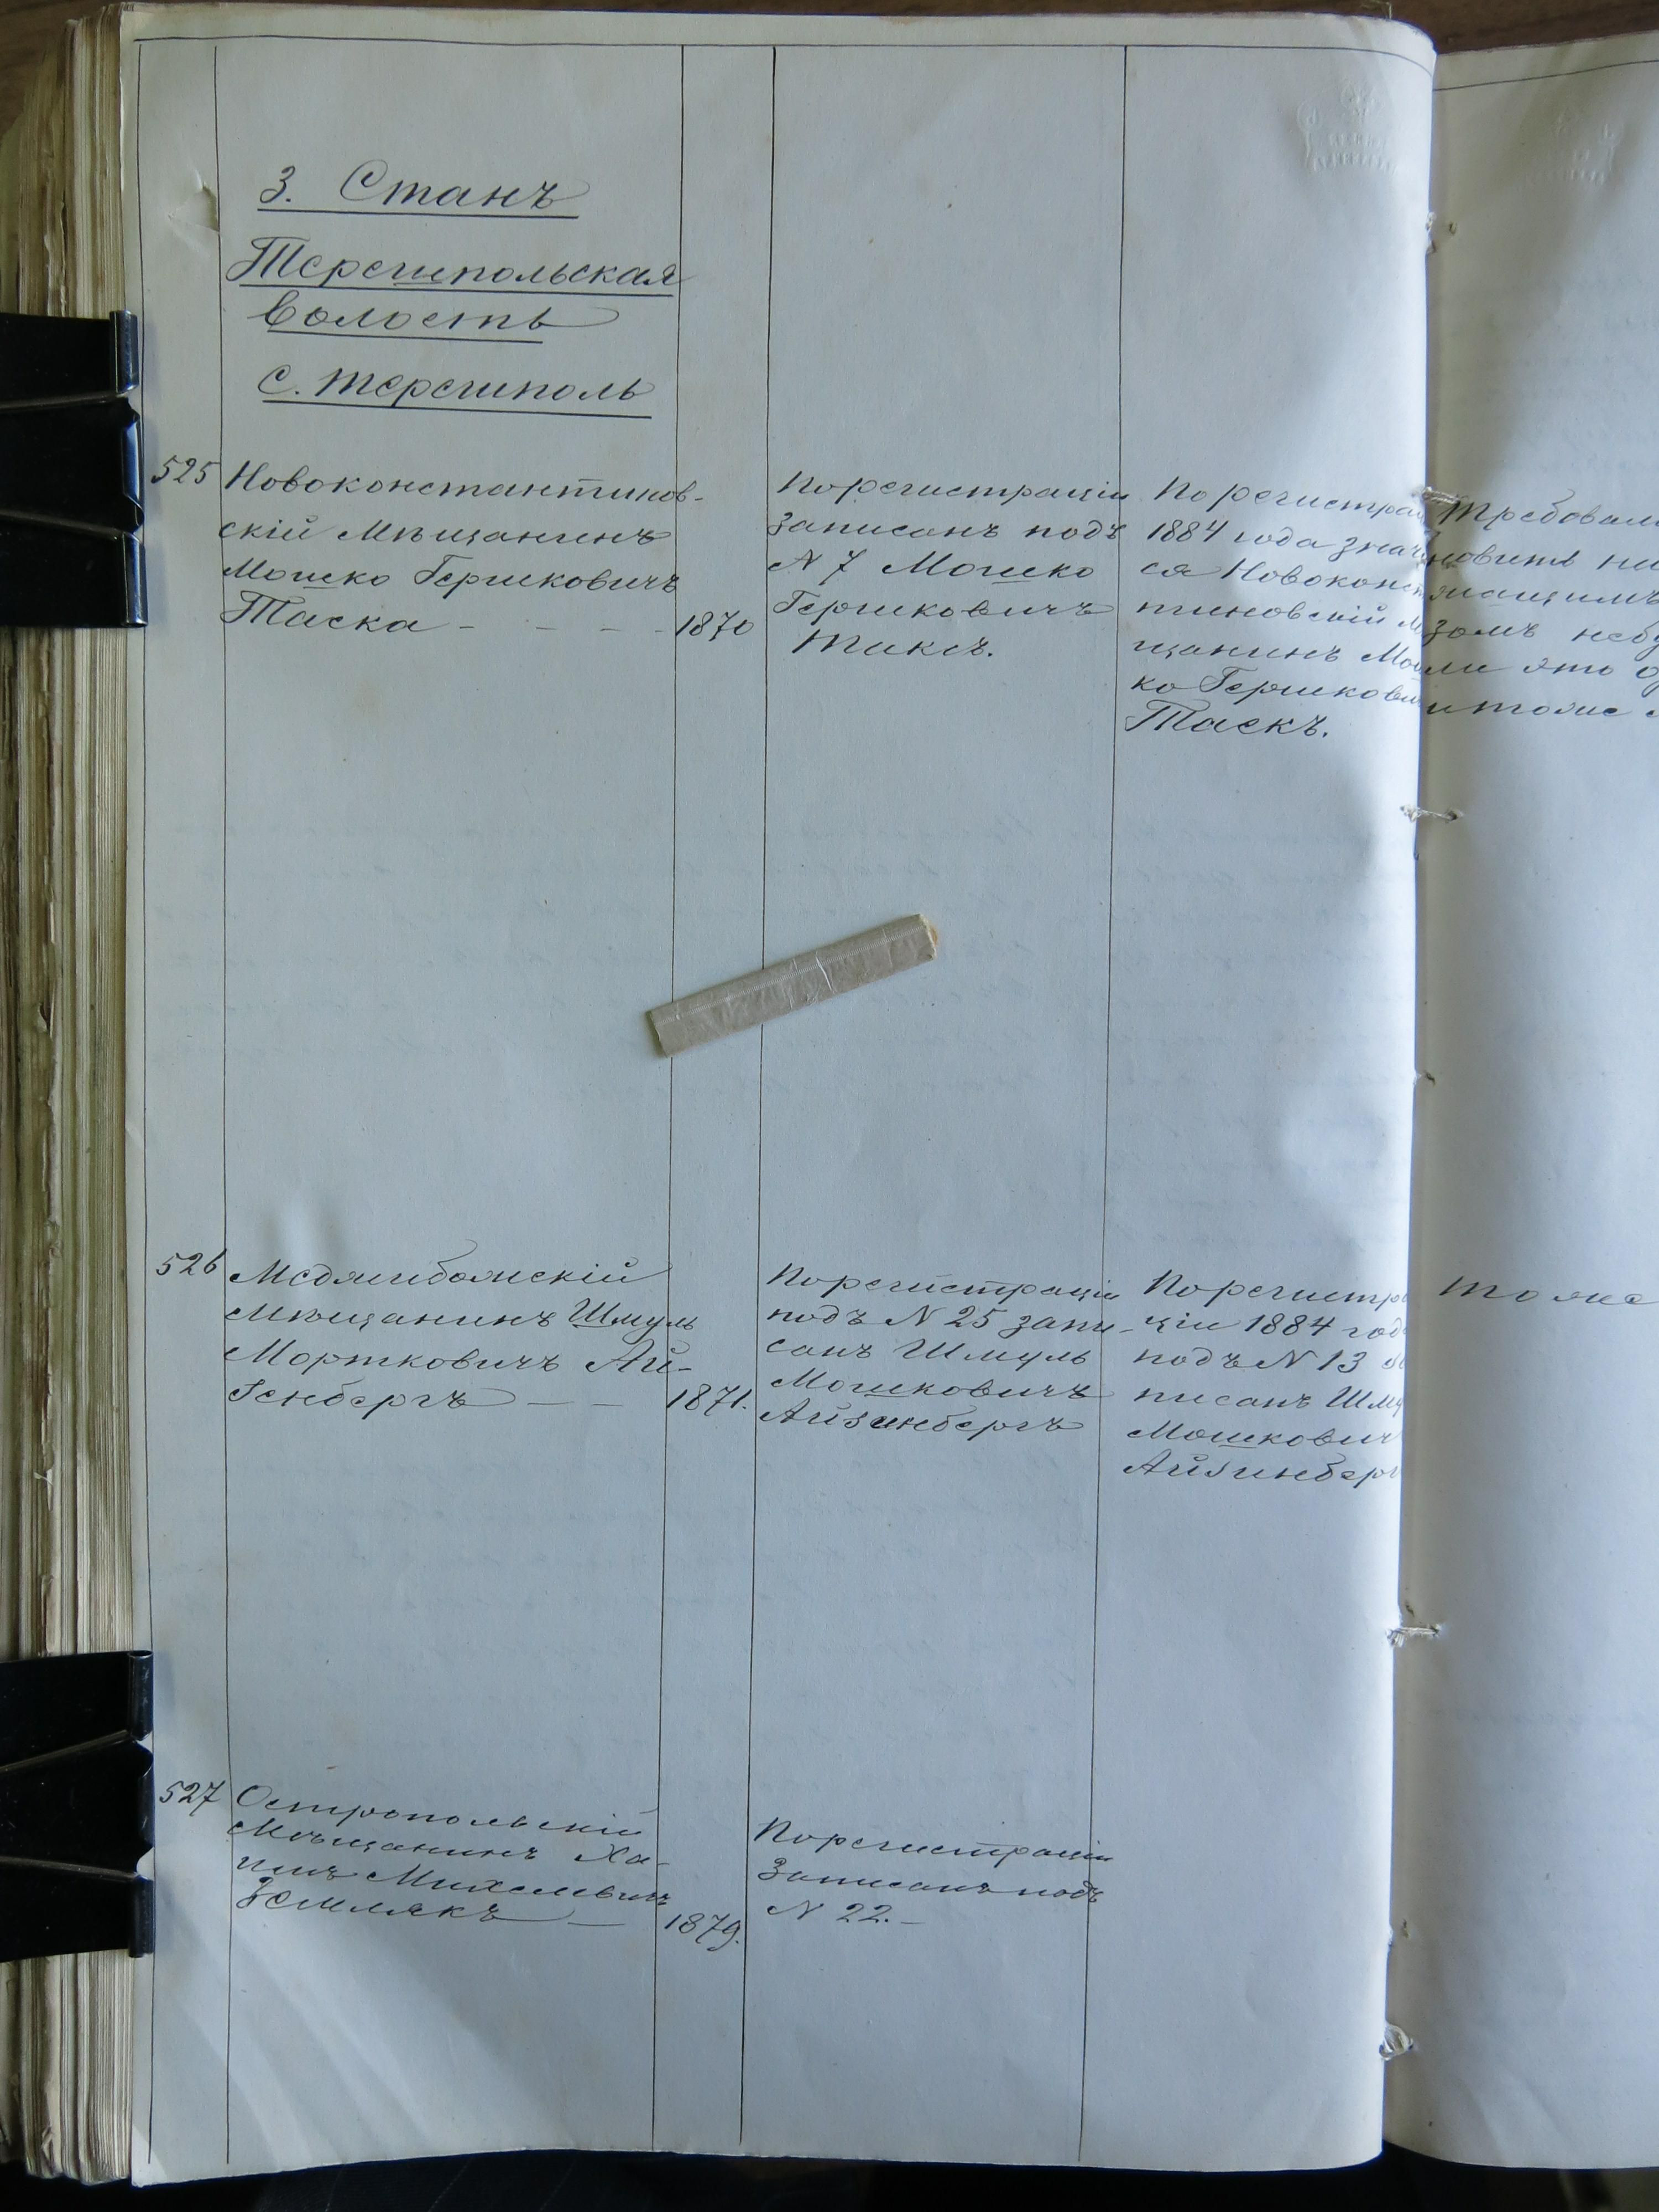 3. Станъ
Терешпольская
волость
с. Терешполь
525
Новоконстантинов-
скій Мѣщанинъ
Мошко Гершковичъ
Таска - - - -
1870
По регистраціи
записанъ подъ
N 7 Мошко
Гершковичъ
Таксъ.
По регистра
1884 года знач
ся Новоконст
тиновскій М
щанинъ Мош
ко Гершкови
Таскъ.
526
Меджибожскій
Мѣщанинъ Шмуль
Мортковичъ Ай-
зенбергъ - -
1871.
По регистраціи
подъ N 25 запи-
санъ Шмуль
Мошковичъ
Айзенбергъ
По регистра
ціи 1884 год
подъ N 13 за
писанъ Шму
Мошкович
Айзинберг
527
Остропольскій
Мѣщанинъ Ха-
имъ Михелевичъ
Землякъ -
1879.
По регистраціи
Записанъ подъ
N 22. -
Требовал
новить ни
зомъ небу
ли это о
и тоже
тоже